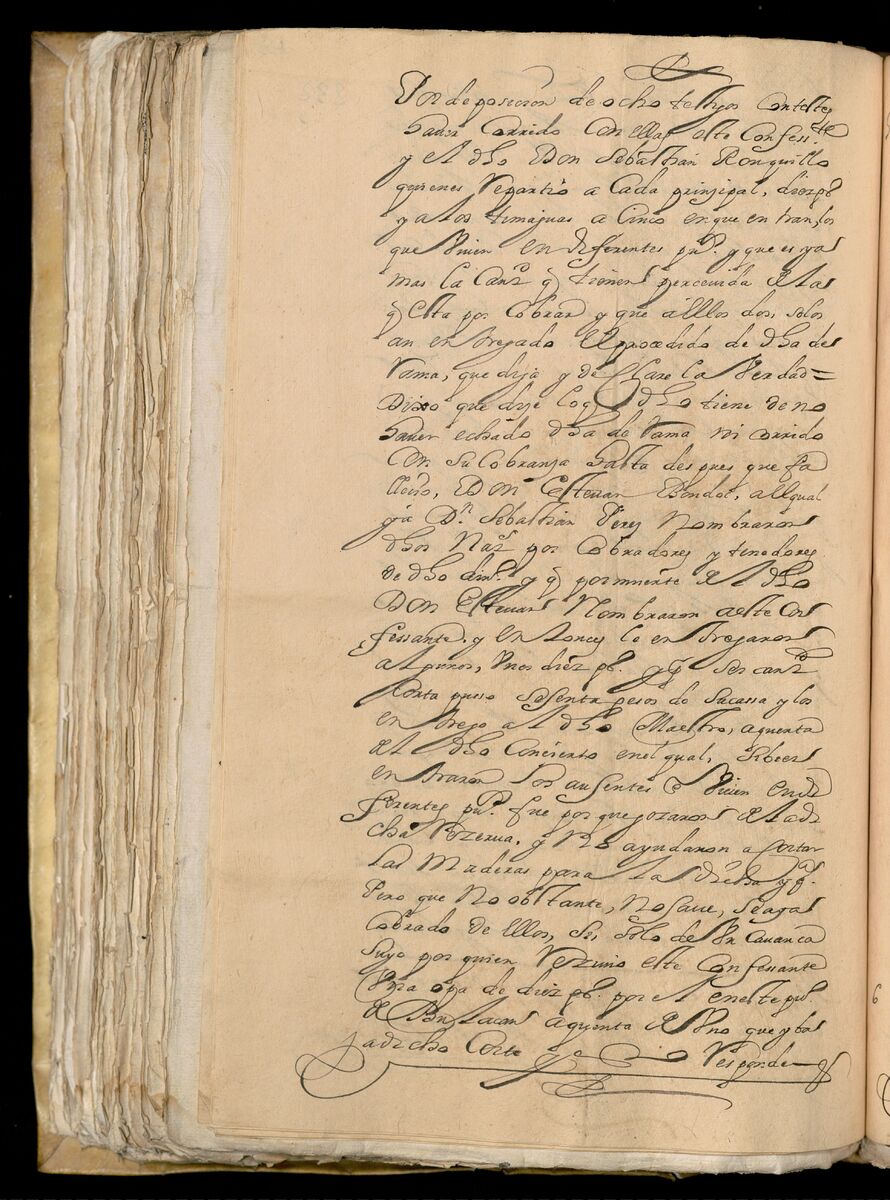 Por deposicion de ocho testigos conteste
haver corrido con ellas este confess.te
y el dho Don Sebastian Ronquillo
quienes repartio a cada prinsipal, diez p.s
y a los timajuas a cinco en que entran, los
que viven en diferentes pu.s y que es ya
mas la can.d q tienen percevida de las
q esta por cobrar y que ellos dos, solos
an entregado el procedido de dha der
rama, que diga y declare la verdad =
Dixo que dise lo q dho tiene de no
haver echado dha derrama ni corrido
con su cobransa hasta despues que fa
llesio, Don Estevan Bondoc, al qual
y a D.n Sebastian Peres nombraron
dhos Na.s por cobradores y tenedores
de dho din.o y q por muerte del dho
Don Estevan nombraron a este con
fessante, y entonces le entregaron
algunos, unos diez p.s y q ser can.d
corta pusso sesenta pesos de su cassa y los
entrego al dho Maestro, a quenta
del dho concierto en el qual, si bien
entraron los ausentes q viven en di
ferentes pu.s fue por que gozaron de la di
cha rezerva, y no ayudaron a cortar
las maderas para la dicha yg.a
Pero que no obstante, no save, se aga
cobrado de ellos, si, solo de un cavança
suyo por quien rezivio este confessante
una opa de diez p.s por el en este pu.o
de Bulacan a quenta de uno que yba
a dicho corte y.a responde